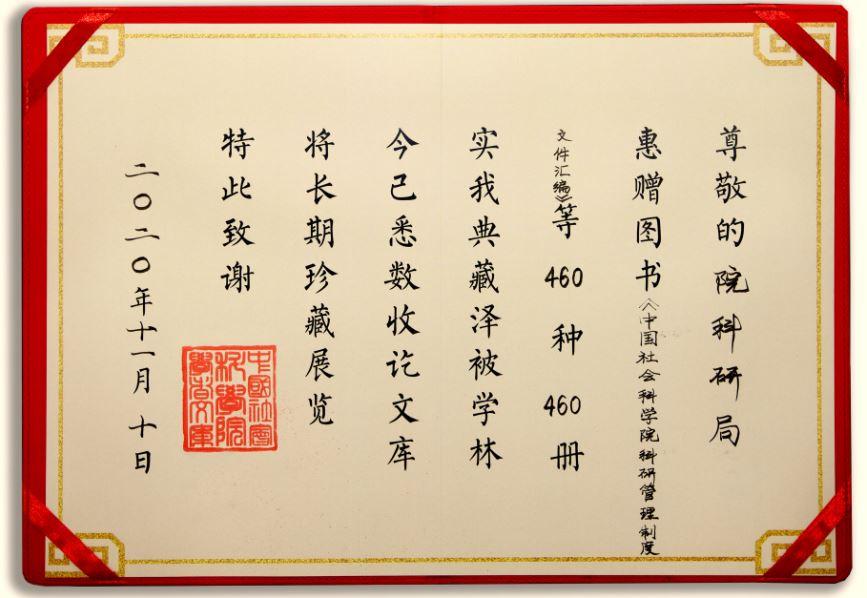 尊敬的院科研局
惠赠图书《中国社会科学院科研管理制度
文件汇编》等460种460册
实我典藏泽被学林
今已悉数收讫文库
将长期珍藏展览
特此致谢
二〇二〇年十一月十日
中國社會
科學院
學者文庫